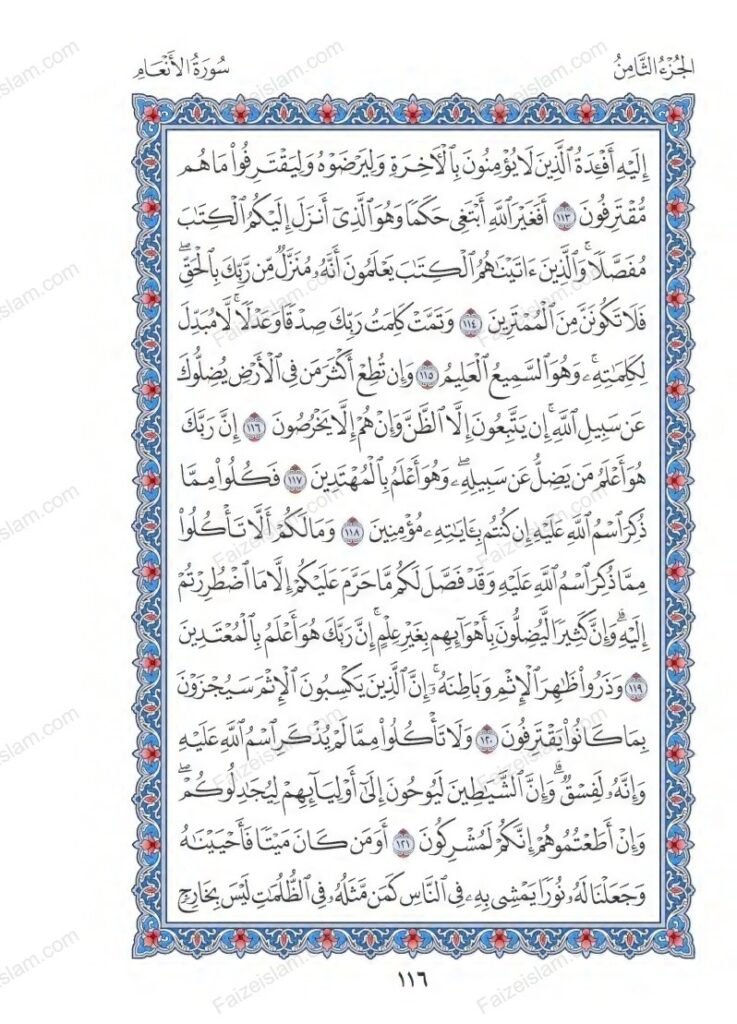 الجُزْءُ الثَّامِنُ
سُورَةُ الأَنْعَامِ
إِلَيْهِ أَفْـِٔدَةُ ٱلَّذِينَ لَا يُؤْمِنُونَ بِٱلْأٓخِرَةِ وَلِيَرْضَوْهُ وَلِيَقْتَرِفُوا۟ مَا هُم
مُّقْتَرِفُونَ ١١٣ أَفَغَيْرَ ٱللَّهِ أَبْتَغِى حَكَمًا وَهُوَ ٱلَّذِىٓ أَنزَلَ إِلَيْكُمُ ٱلْكِتَٰبَ
مُفَصَّلًا ۚ وَٱلَّذِينَ ءَاتَيْنَٰهُمُ ٱلْكِتَٰبَ يَعْلَمُونَ أَنَّهُۥ مُنَزَّلٌ مِّن رَّبِّكَ بِٱلْحَقِّ ۖ
فَلَا تَكُونَنَّ مِنَ ٱلْمُمْتَرِينَ ١١٤ وَتَمَّتْ كَلِمَتُ رَبِّكَ صِدْقًا وَعَدْلًا ۚ لَّا مُبَدِّلَ
لِكَلِمَٰتِهِۦ ۚ وَهُوَ ٱلسَّمِيعُ ٱلْعَلِيمُ ١١٥ وَإِن تُطِعْ أَكْثَرَ مَن فِى ٱلْأَرْضِ يُضِلُّوكَ
عَن سَبِيلِ ٱللَّهِ ۚ إِن يَتَّبِعُونَ إِلَّا ٱلظَّنَّ وَإِنْ هُمْ إِلَّا يَخْرُصُونَ ١١٦ إِنَّ رَبَّكَ
هُوَ أَعْلَمُ مَن يَضِلُّ عَن سَبِيلِهِۦ ۖ وَهُوَ أَعْلَمُ بِٱلْمُهْتَدِينَ ١١٧ فَكُلُوا۟ مِمَّا
ذُكِرَ ٱسْمُ ٱللَّهِ عَلَيْهِ إِن كُنتُم بِـَٔايَٰتِهِۦ مُؤْمِنِينَ ١١٨ وَمَا لَكُمْ أَلَّا تَأْكُلُوا۟
مِمَّا ذُكِرَ ٱسْمُ ٱللَّهِ عَلَيْهِ وَقَدْ فَصَّلَ لَكُم مَّا حَرَّمَ عَلَيْكُمْ إِلَّا مَا ٱضْطُرِرْتُمْ
إِلَيْهِ ۗ وَإِنَّ كَثِيرًا لَّيُضِلُّونَ بِأَهْوَآئِهِم بِغَيْرِ عِلْمٍ ۗ إِنَّ رَبَّكَ هُوَ أَعْلَمُ بِٱلْمُعْتَدِينَ
١١٩ وَذَرُوا۟ ظَٰهِرَ ٱلْإِثْمِ وَبَاطِنَهُۥٓ ۚ إِنَّ ٱلَّذِينَ يَكْسِبُونَ ٱلْإِثْمَ سَيُجْزَوْنَ
بِمَا كَانُوا۟ يَقْتَرِفُونَ ١٢٠ وَلَا تَأْكُلُوا۟ مِمَّا لَمْ يُذْكَرِ ٱسْمُ ٱللَّهِ عَلَيْهِ
وَإِنَّهُۥ لَفِسْقٌ ۗ وَإِنَّ ٱلشَّيَٰطِينَ لَيُوحُونَ إِلَىٰٓ أَوْلِيَآئِهِمْ لِيُجَٰدِلُوكُمْ ۖ
وَإِنْ أَطَعْتُمُوهُمْ إِنَّكُمْ لَمُشْرِكُونَ ١٢١ أَوَمَن كَانَ مَيْتًا فَأَحْيَيْنَٰهُ
وَجَعَلْنَا لَهُۥ نُورًا يَمْشِى بِهِۦ فِى ٱلنَّاسِ كَمَن مَّثَلُهُۥ فِى ٱلظُّلُمَٰتِ لَيْسَ بِخَارِجٍ
١١٦
Faizeislam.com